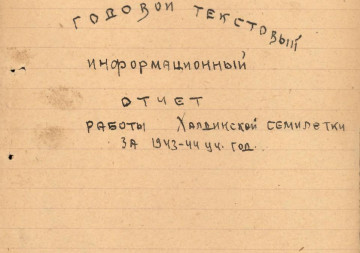 ГОДОВОЙ ТЕКСТОВЫЙ
ИНФОРМАЦИОННЫЙ
ОТЧЕТ
РАБОТЫ ХАЛДИНСКОЙ СЕМИЛЕТКИ
ЗА 1943-44 УЧ. ГОД.